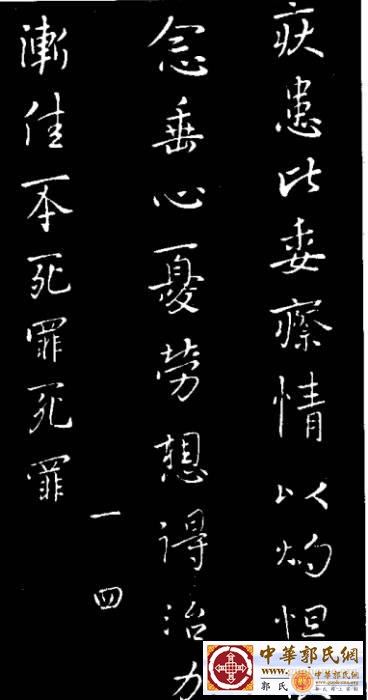 疾患比委瘵情以灼怛
念垂心憂勞想得治力
漸佳不死罪死罪
一 四
中華郭氏網
郭氏